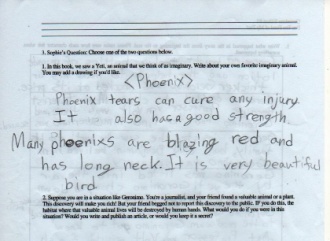 1. Sophie's Question: Choose one of the two questions below.
1. In this book, we saw a Yeti, an animal that we think of as imaginary. Write about your own favorite imaginary animal.
You may add a drawing if you'd like.
<Phoenix>
Phoenix tears can cure any injury.
It also has a good strength.
Many phoenixs are blazing red and
has long neck. It is very beautiful
bird
2. Suppose you are in a situation like Geronimo. You're a journalist, and your friend found a valuable animal or a plant.
This discovery will make you rich! But your friend begged not to report this discovery to the public. If you do this, the
habitat where that valuable animal lives will be destroyed by human hands. What would you do if you were in this
situation? Would you write and publish an article, or would you keep it a secret?